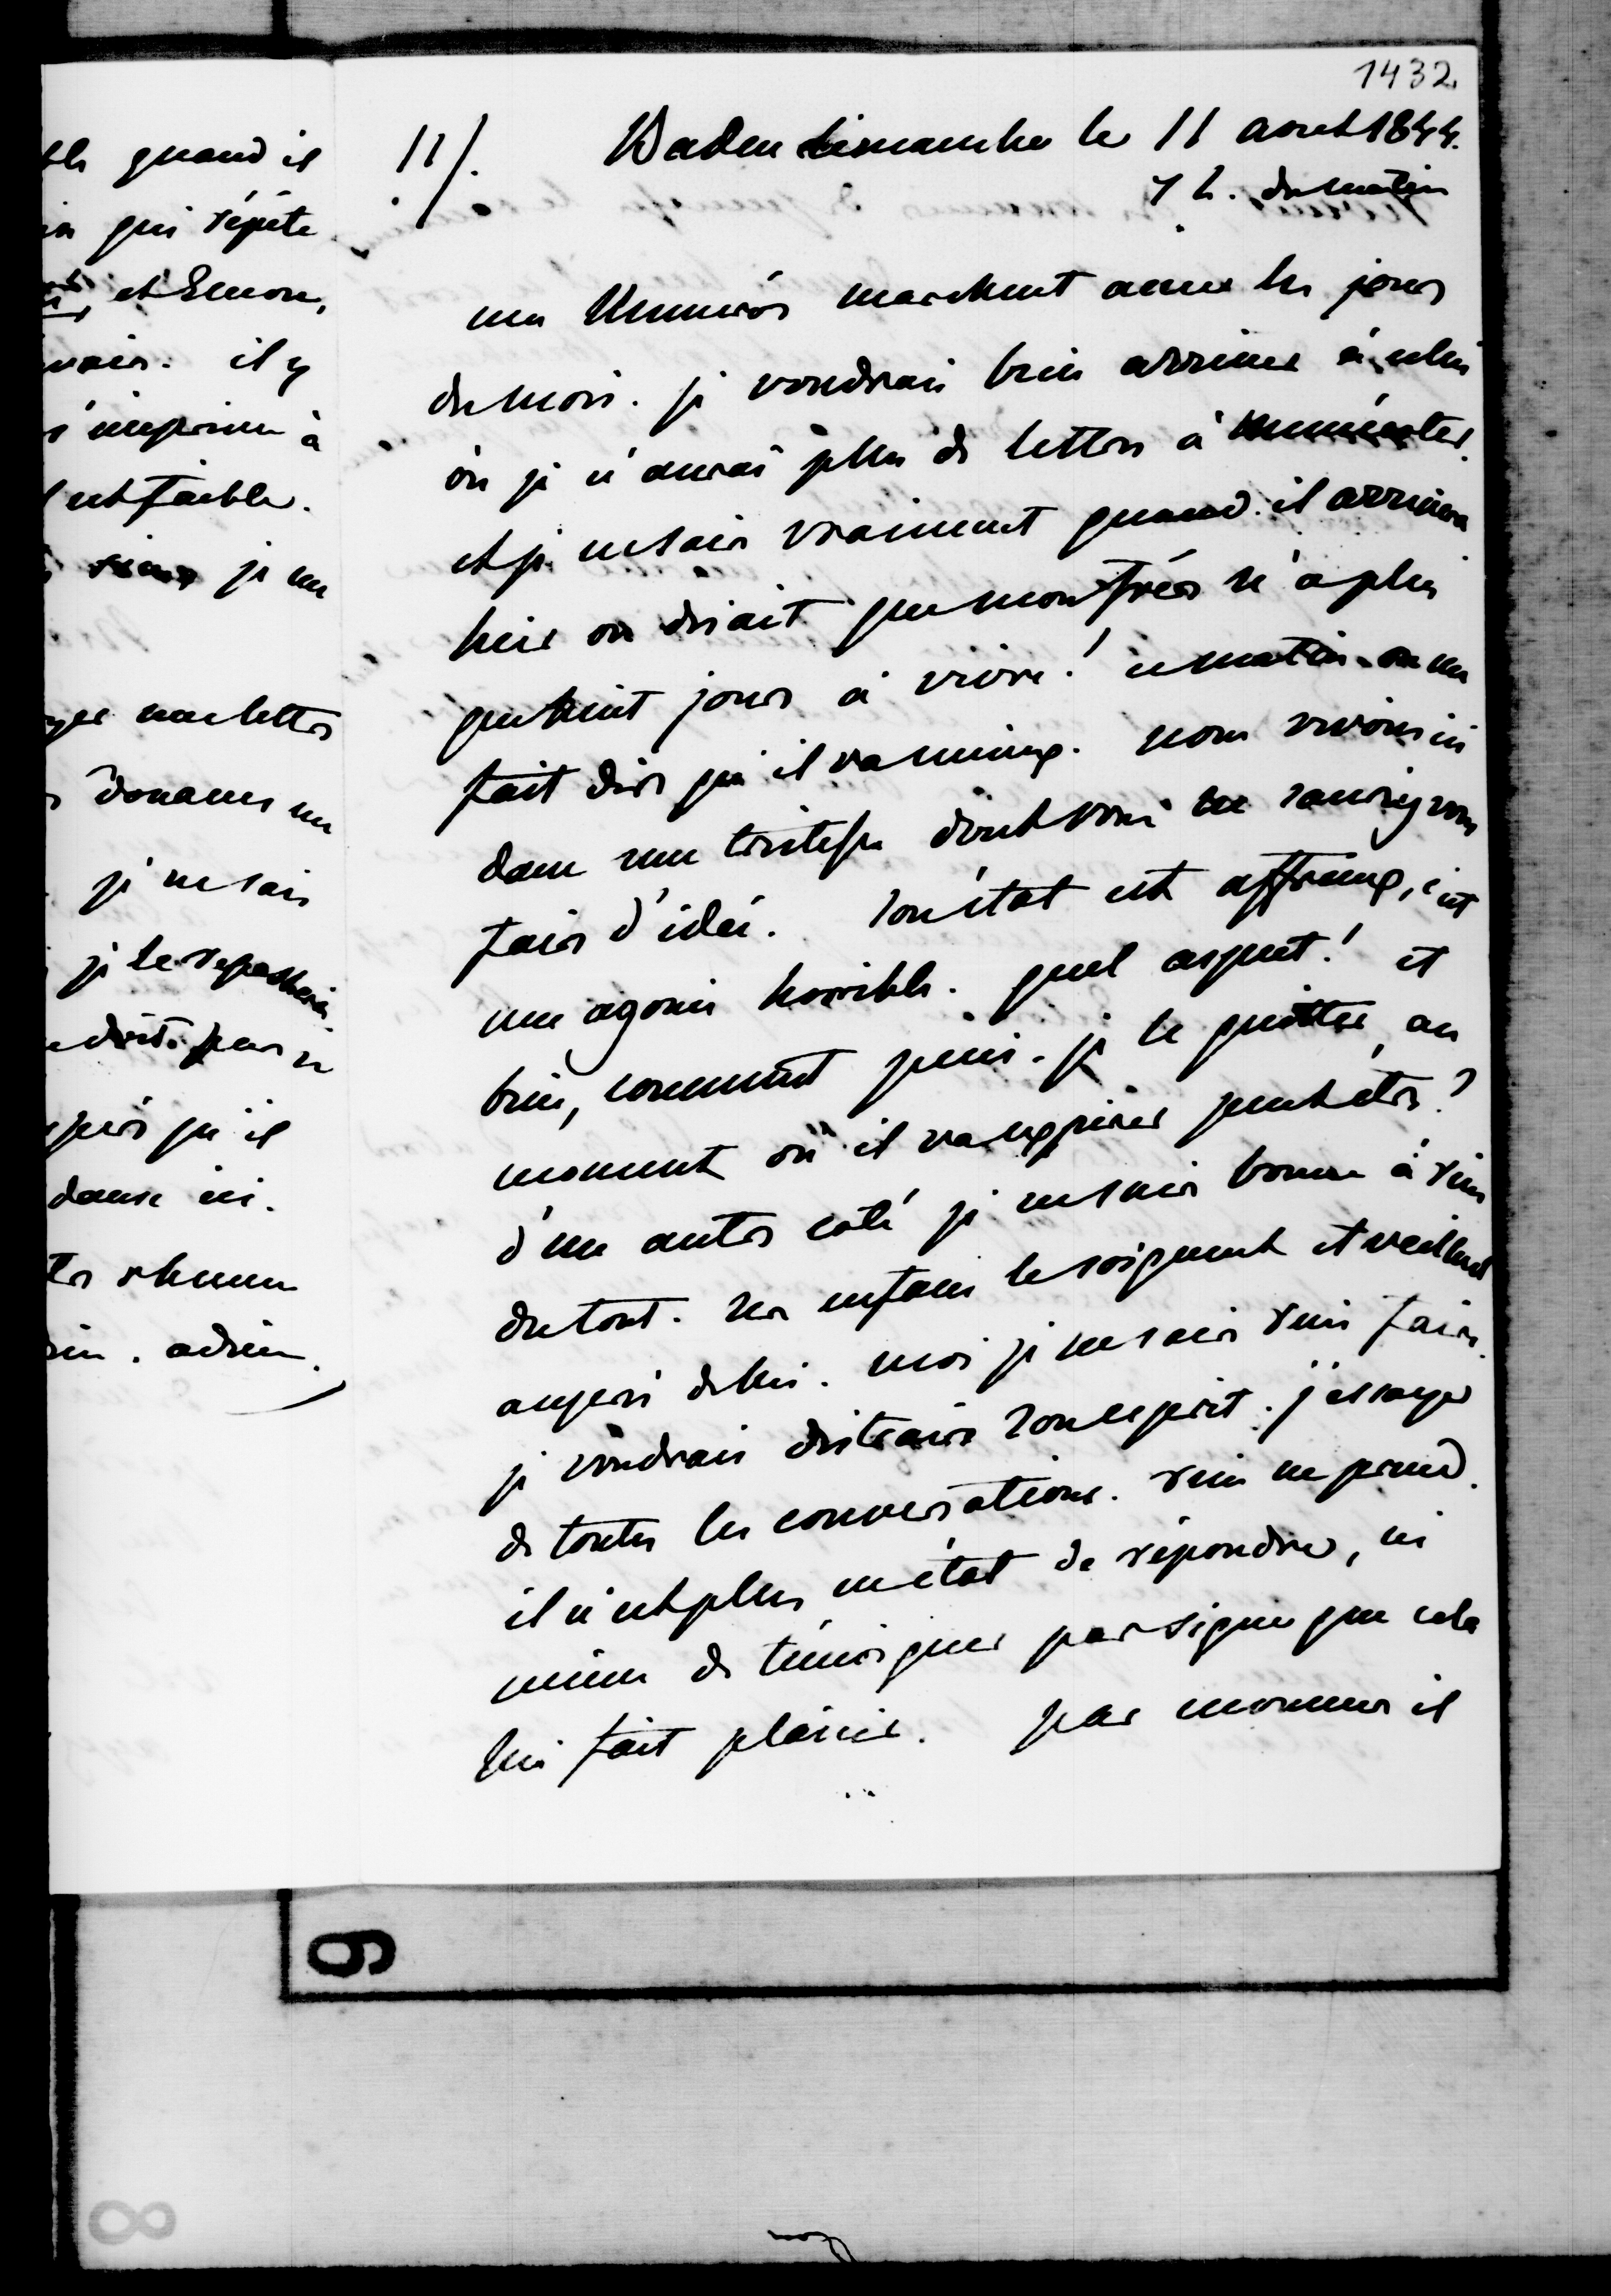 1432.
ble quand il
qui répète
et Simon,
mais. il y
s'imprime à
est faible.
rien je ne
mes lettres
donanes un
je ne sais
je le
droit. pas
qu'il
danse ici.
rhume
adieu.
11/. Baden dimanche le 11 aout 1844.
7 h. du matin
mes Numéros marchent avec les jours
du mois. je voudrais bien arriver à celui
où je n'aurai plus de lettres à numéroter.
et je ne sais vraiment quand il arrivera
hier on disait que mon frère n'a plus
que huit jours à vivre! ce matin on me
fait dire qu'il va mieux. nous vivons ici
dans une tristesse dont vous ne sauriez vous
faire d'idée. son état est affreux, c'est
une agonie horrible. quel aspect! et
bien, comment puis-je le quitter, au
moment où il va expirer peut être?
d'un autre coté je ne suis bonne à rien
du tout. ses enfans le soignent et veillent
auprès de lui. moi je ne sais rien faire.
je voudrais distraire son esprit. j'essaye
de toutes les conversations. rien ne prend.
il n'est plus en état de répondre, ni
même de témoigner par signe que cela
lui fait plaisir. par momens il
9
8